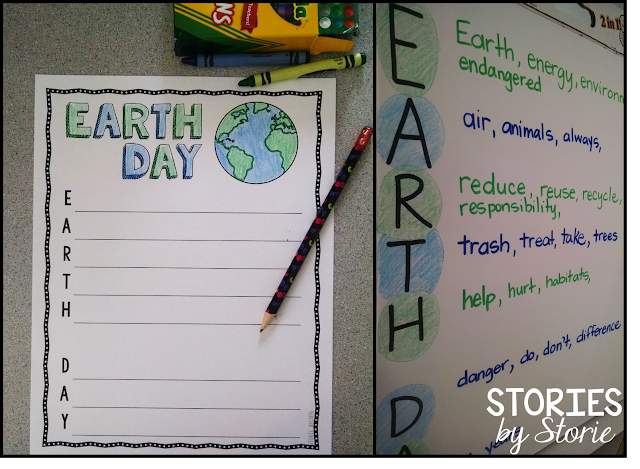 EARTH
DAY
E
A
R
T
H
D
A
Y
E
Earth, energy, environm
endangered
A
air, animals, always,
R
reduce, reuse, recycle,
responsibility,
T
trash, treat, take, trees
H
help, hurt, habitats,
danger, do, don't, difference
D
A
STORIES
by Storie